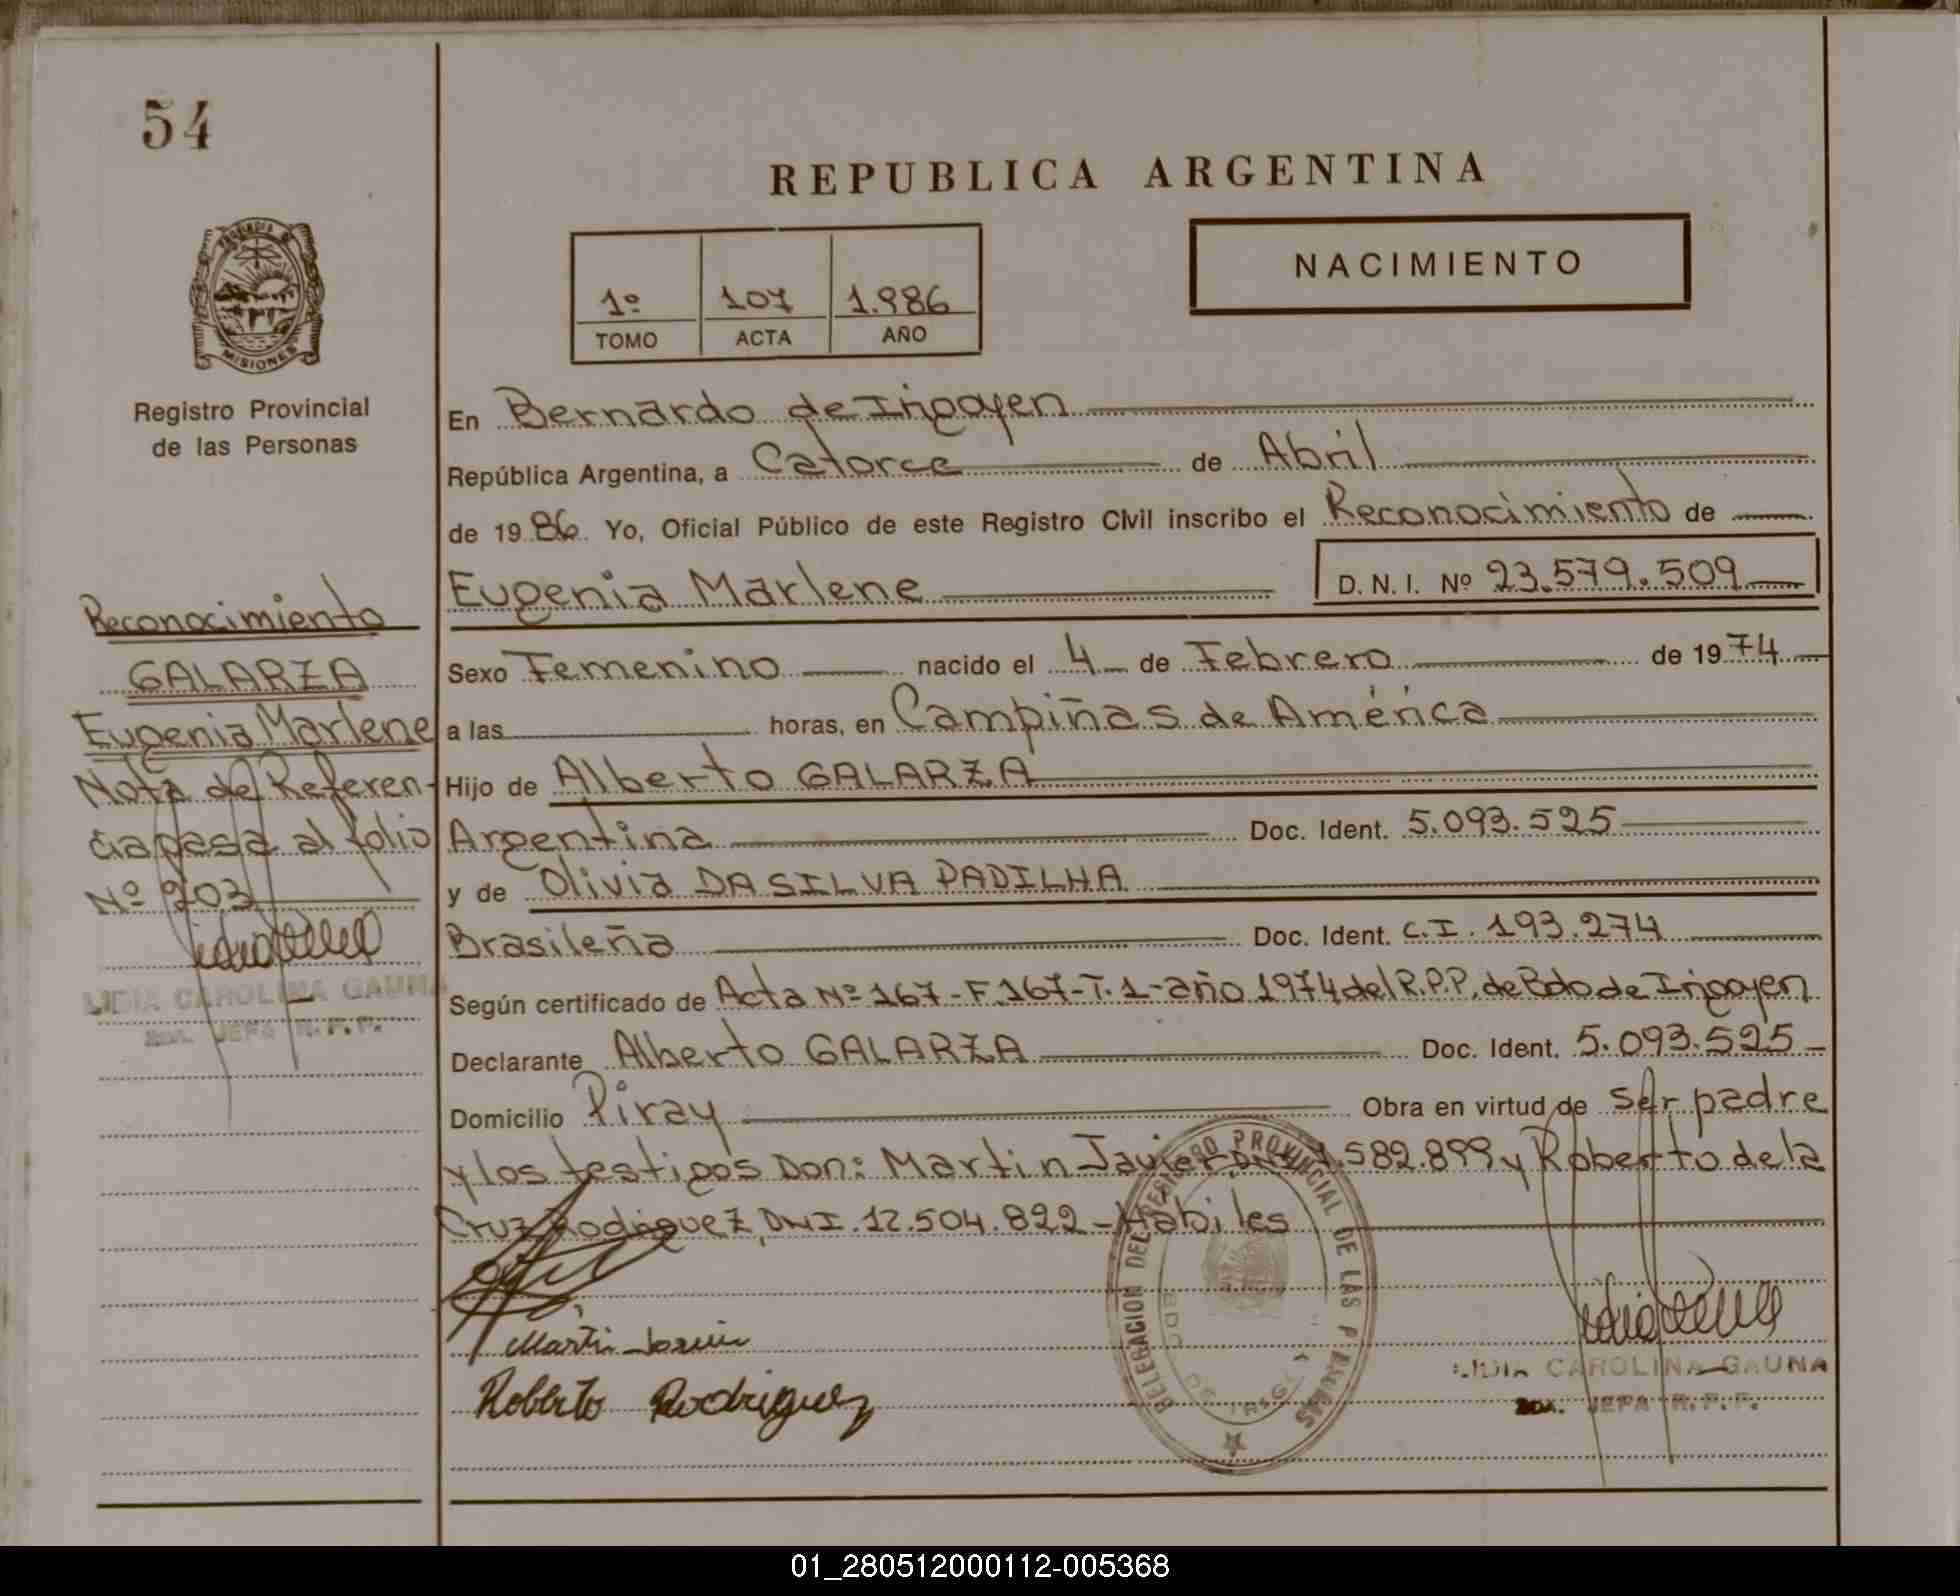 54
REPUBLICA ARGENTINA
NACIMIENTO
1º 107 1.986
TOMO ACTA AÑO
MISIONES
Registro Provincial
de las Personas
En Bernardo de Irigoyen
República Argentina, a Catorce de Abril
de 1986. Yo, Oficial Público de este Registro Civil inscribo el Reconocimiento de
Eugenia Marlene D. N. I. Nº 23.579.509
Sexo Femenino nacido el 4 de Febrero de 1974
a las horas, en Campiñas de América
Hijo de Alberto GALARZA
Argentina Doc. Ident. 5.093.525
y de Olivia DA SILVA PADILHA
Brasileña Doc. Ident. C.I. 193.274
Según certificado de Acta Nº 167-F.167-T.1-año 1974 del R.P.P. de Bdo de Irigoyen
Declarante Alberto GALARZA Doc. Ident. 5.093.525
Domicilio Piray Obra en virtud de ser padre
y los testigos Don: Martin Javier .582.899 y Roberto de la
Cruz Rodriguez, DNI. 12.504.822 - Habiles
Roberto Rodriguez
DELEGACION DEL REGISTRO PROVINCIAL DE LAS PERSONAS
BDO DE IRIGOYEN
LIDIA CAROLINA GAUNA
2DA. JEFA R. P. P.
Reconocimiento
GALARZA
Eugenia Marlene
Nota de Referen-
cia pasa al folio
Nº 203
LIDIA CAROLINA GAUNA
2DA. JEFA R. P. P.
01_280512000112-005368